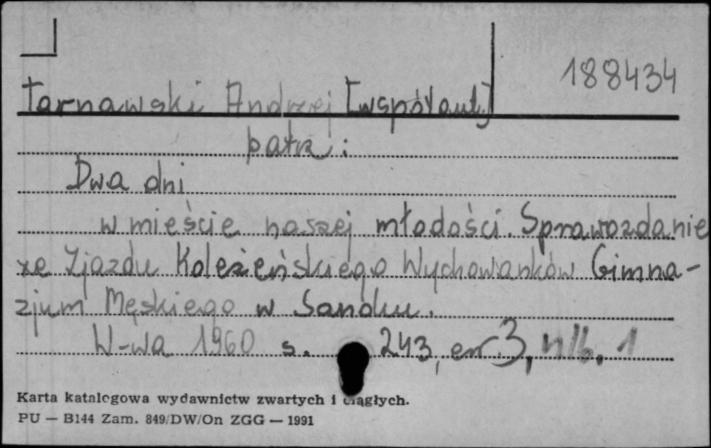 188434
Tarnawski Andrzej [współaut.]
patrz:
Dwa dni
w mieście naszej młodości. Sprawozdanie
ze Zjazdu Koleżeńskiego Wychowanków Gimna-
zjum Męskiego w Sanoku.
W-wa 1960 s. 243, err. 3, nlb. 1
Karta katalogowa wydawnictw zwartych i ciągłych.
PU — B144 Zam. 849/DW/On ZGG — 1991